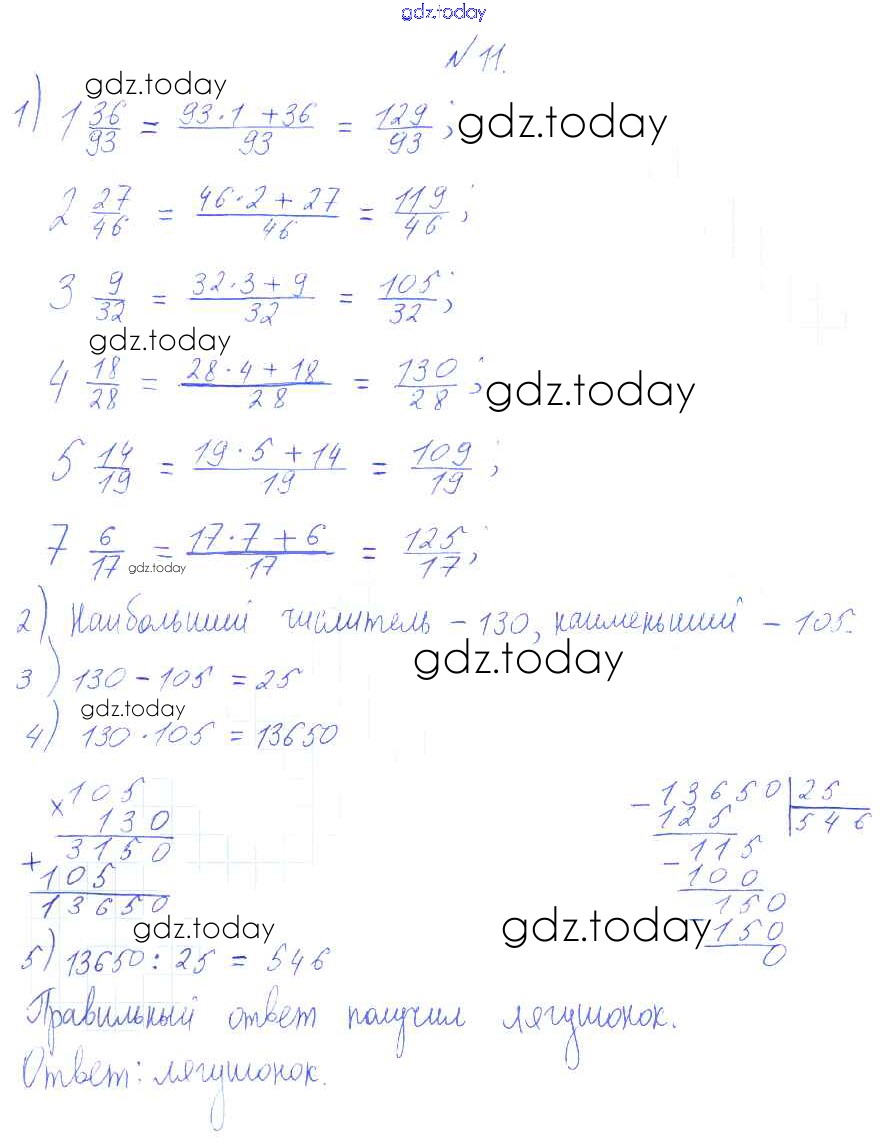 gdz.today
№ 11.
gdz.today
1) 1 36/93 = (93·1+36)/93 = 129/93; gdz.today
2 27/46 = (46·2+27)/46 = 119/46;
3 9/32 = (32·3+9)/32 = 105/32;
gdz.today
4 18/28 = (28·4+18)/28 = 130/28; gdz.today
5 14/19 = (19·5+14)/19 = 109/19;
7 6/17 = (17·7+6)/17 = 125/17;
gdz.today
2) Наибольший числитель – 130, наименьший – 105.
gdz.today
3) 130 – 105 = 25
gdz.today
4) 130·105 = 13650
× 105
130
+ 3150
105
13650
– 13650 | 25
125 | 546
– 115
100
– 150
150
0
gdz.today gdz.today
5) 13650 : 25 = 546
Правильный ответ получил лягушонок.
Ответ: лягушонок.